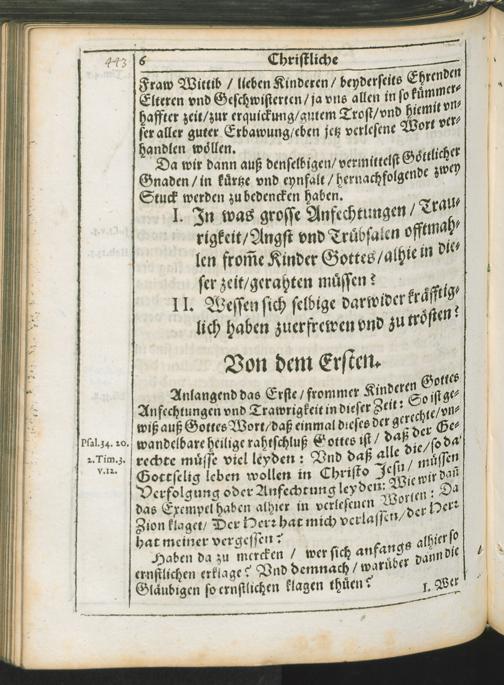 443
6 Christliche
Fraw Wittib / lieben Kinderen / beyderseits Ehrenden
Elteren vnd Geschwisterten / ja vns allen in so kümmer-
haffter zeit / zur erquickung / gutem Trost / vnd hiemit vn-
ser aller guter Erbawung / eben jetz verlesene Wort ver-
handlen wöllen.
Da wir dann auß denselbigen / vermittelst Göttlicher
Gnaden / in kürtze vnd eynfalt / hernachfolgende zwey
Stuck werden zu bedencken haben.
I. In was grosse Anfechtungen / Trau-
rigkeit / Angst vnd Trübsalen offtmah-
len from̃e Kinder Gottes / alhie in die-
ser zeit / gerahten müssen?
II. Wessen sich selbige darwider kräfftig-
lich haben zuerfrewen vnd zu trösten?
Von dem Ersten.
Anlangend das Erste / frommer Kinderen Gottes
Anfechtungen vnd Trawrigkeit in dieser Zeit: So ist ge-
wiß auß Gottes Wort / daß einmal dieses der gerechte / vn-
Psal. 34. 20. wandelbare heilige rahtschluß Gottes ist / daß der Ge-
2. Tim. 3. rechte müsse viel leyden: Vnd daß alle die / so da
v. 12. Gottselig leben wollen in Christo Jesu / müssen
Verfolgung oder Anfechtung leyden: Wie wir dañ
das Exempel haben alhier in verlesenen Worten: Da
Zion klaget / Der Herr hat mich verlassen / der Herr
hat meiner vergessen?
Haben da zu mercken / wer sich anfangs alhier so
ernstlichen erklage? Vnd demnach / warüber dann die
Gläubigen so ernstlichen klagen thüen?
1. Wer